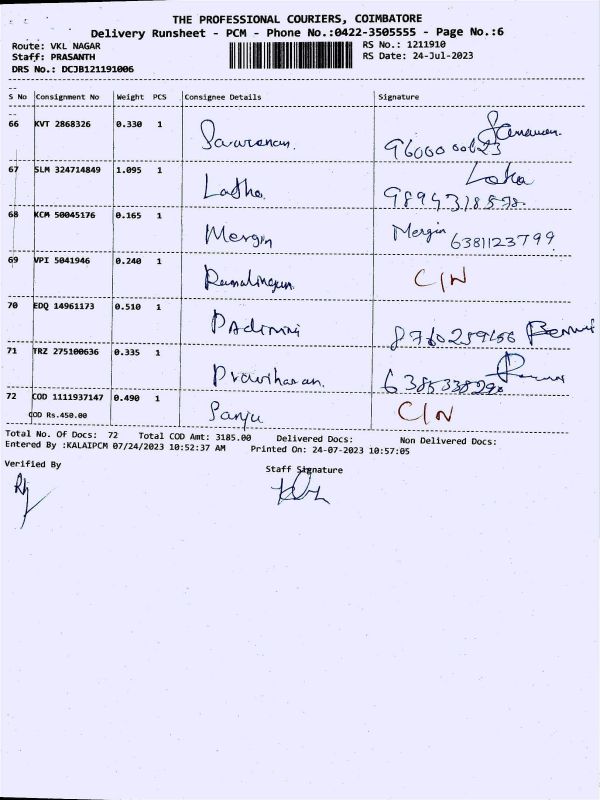 THE PROFESSIONAL COURIERS, COIMBATORE
Delivery Runsheet - PCM - Phone No.:0422-3505555 - Page No.:6
Route: VKL NAGAR RS No.: 1211910
Staff: PRASANTH RS Date: 24-Jul-2023
DRS No.: DCJB121191006
S No Consignment No Weight PCS Consignee Details Signature
66 KVT 2868326 0.330 1 Saravanan. 9600000623
67 SLM 324714849 1.095 1 Latha. Latha 9894318598.
68 KCM 50045176 0.165 1 Mergin Mergin 6381123799
69 VPI 5041946 0.240 1 Ramalingam. C/N
70 EDQ 14961173 0.510 1 PAdmini
71 TRZ 275100636 0.335 1
72 COD 1111937147 0.490 1 Sanju C/N
COD Rs.450.00
Total No. Of Docs: 72 Total COD Amt: 3185.00 Delivered Docs: Non Delivered Docs:
Entered By :KALAIPCM 07/24/2023 10:52:37 AM Printed On: 24-07-2023 10:57:05
Verified By Staff Signature